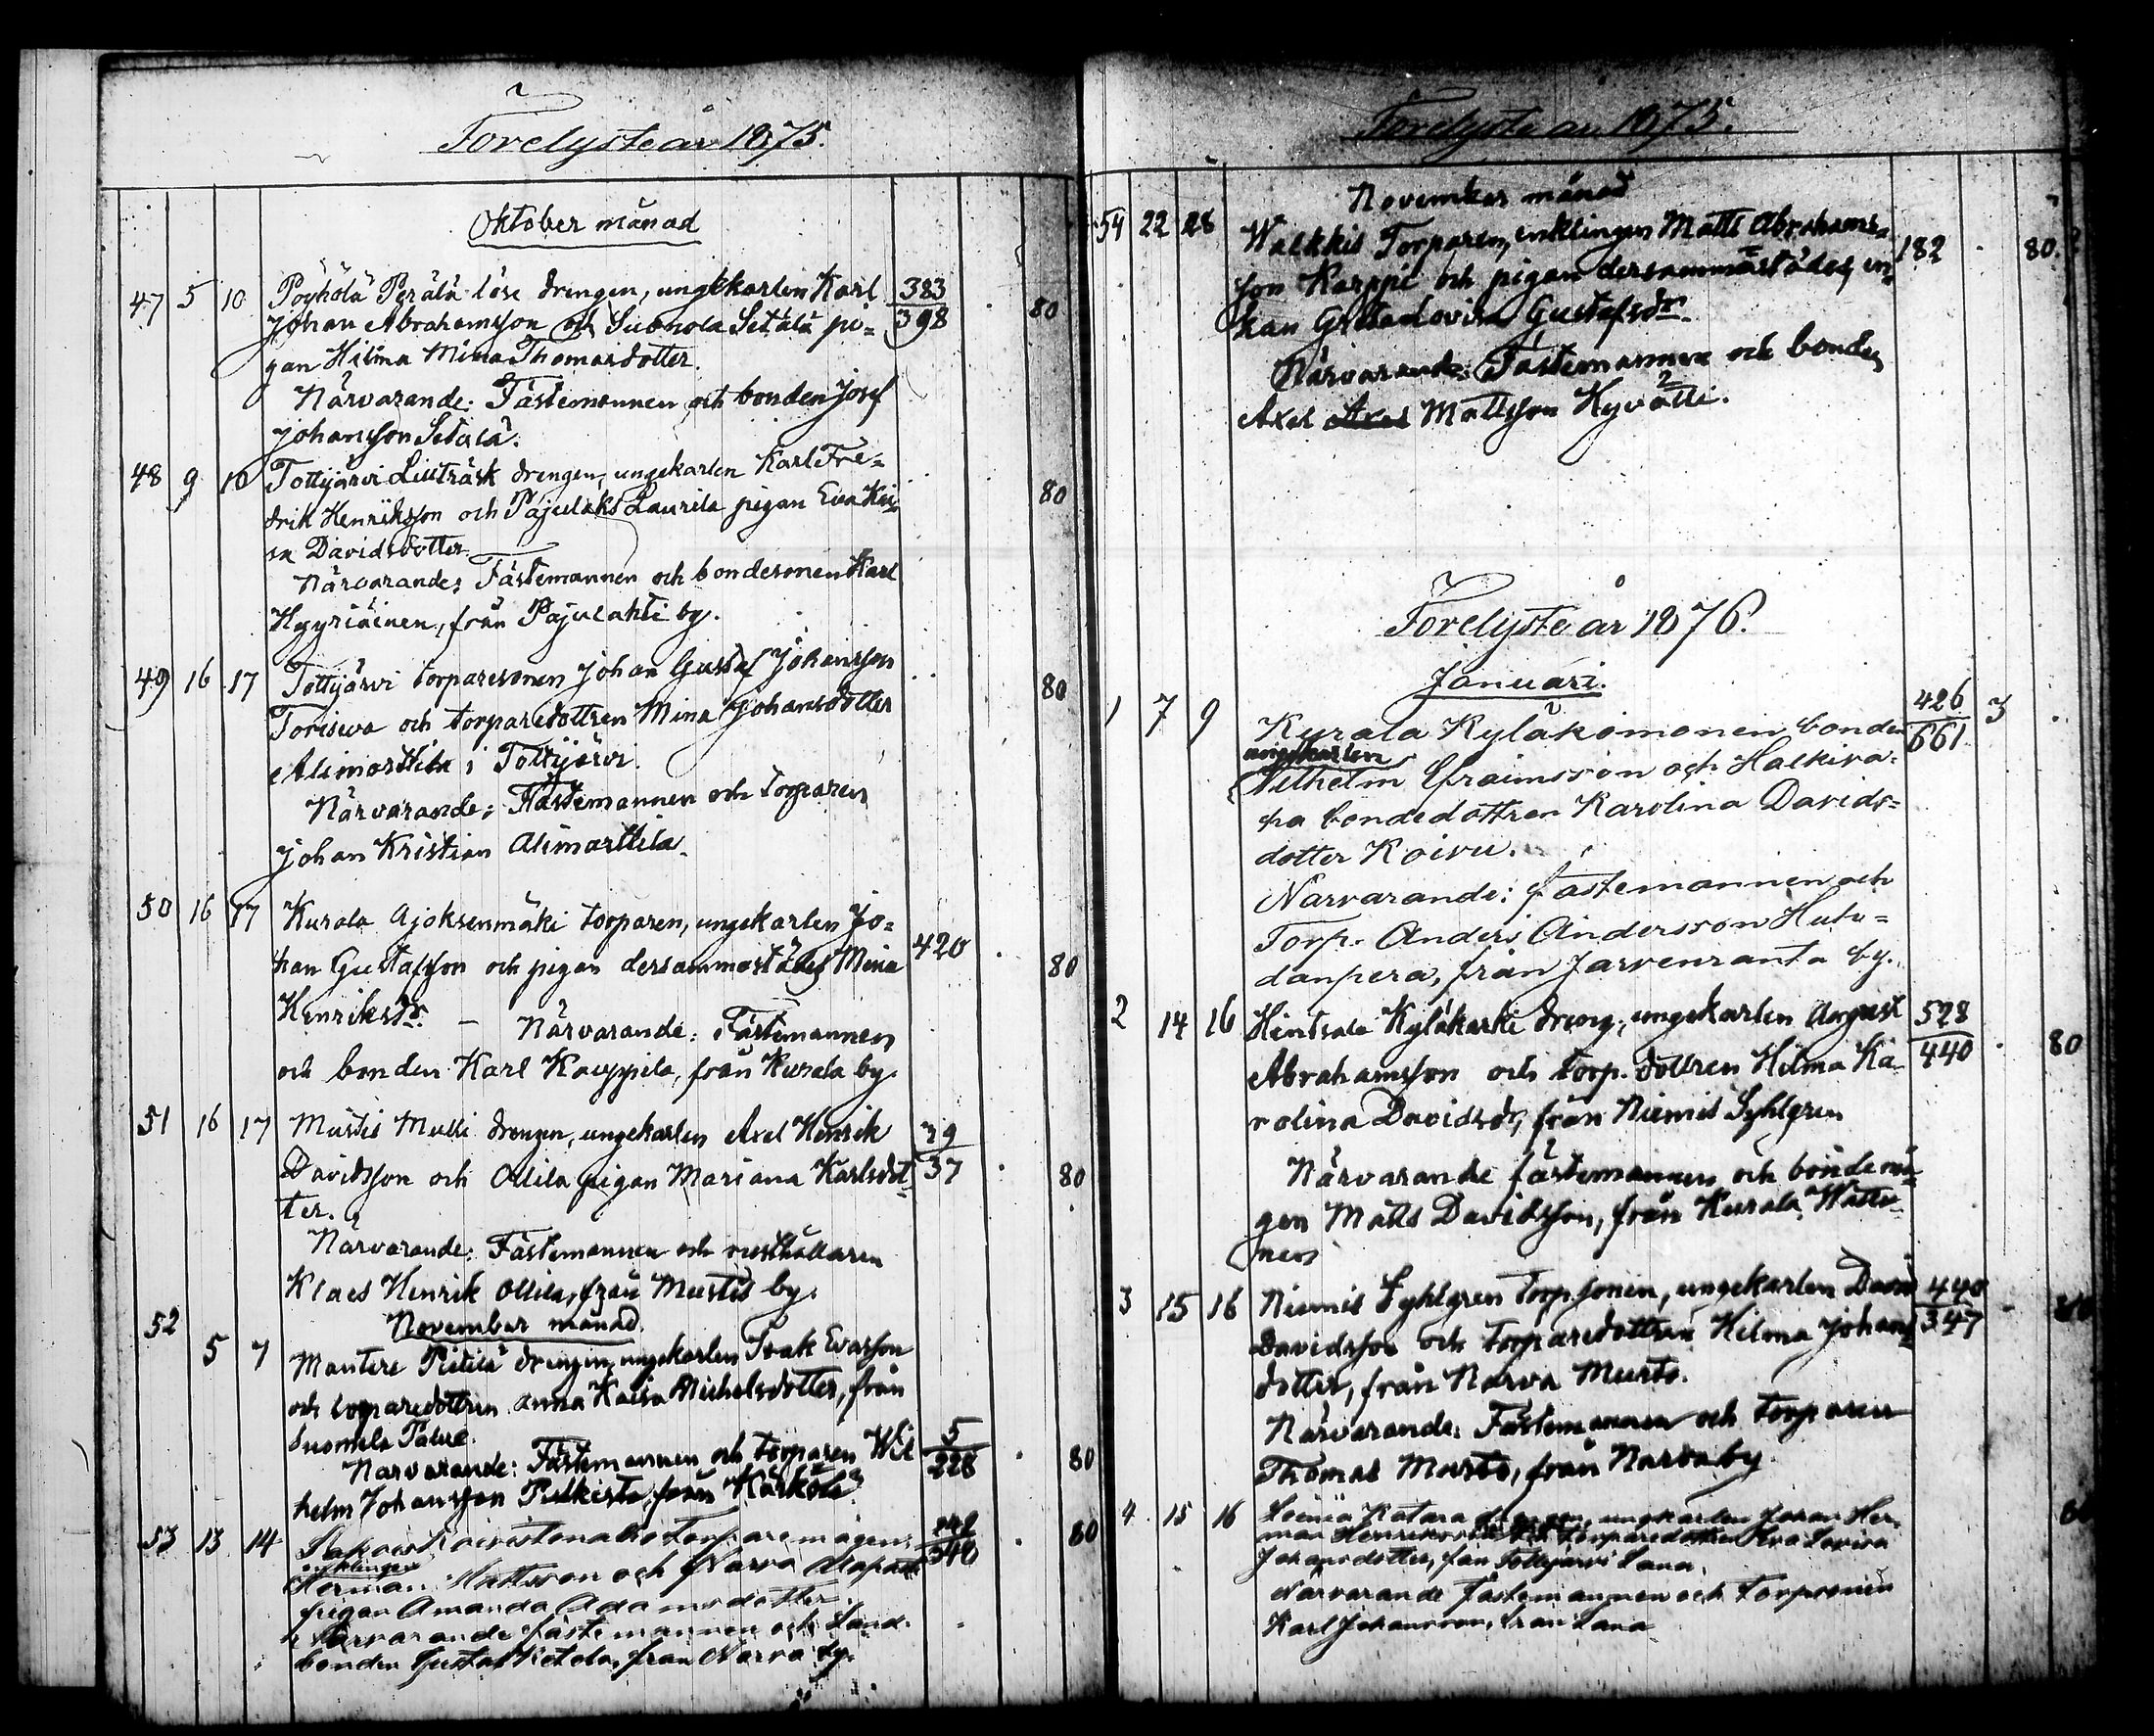 Förelyste år 1875.
Oktober månad
47 5 10 Pöyhölä Perälä löse drengen, ungkarlen Karl 383
Johan Abrahamsson och Suonola Setälä pi= 398 80
gan Hilma Mina Thomasdotter.
Närvarande: Fästemannen och bonden Josef
Johansson Setälä.
48 9 10 Tottijärvi Liuträsk drengen, ungekarlen Karl Fre=
drik Henriksson och Pajulaks Laurila pigan Eva Kai= 80
sa Davidsdotter.
Närvarande: Fästemannen och bondesonen Karl
Hyyriäinen, från Pajulahti by.
49 16 17 Tottijärvi torparesonen Johan Gustaf Johansson 80
Toriseva och torparedottren Mina Johansdotter
Alimarttila i Tottijärvi.
Närvarande: Fästemannen och torparen
Johan Kristian Alimarttila.
50 16 17 Kurala Ajoksenmäki torparen, ungekarlen Jo=
han Gustafsson och pigan dersammastädes Mina 420 80
Henriksdr. — Närvarande: Fästemannen
och bonden Karl Kauppila, från Kurala by.
51 16 17 Mustis Mulli drengen, ungekarlen Axel Henrik 29
Davidsson och Ollila pigan Mariana Karlsdot= 37 80
ter.
Närvarande: Fästemannen och rusthållaren
Klaes Henrik Ollila, från Mustis by.
52 November månad.
5 7 Mantere Pietilä drengen, ungekarlen Isak Evasson
och torparedottren Anna Kaisa Michelsdotter, från
Suomela
Närvarande: Fästemannen och torparen Wil 5
helm Johansson Pulkista, från Kärkölä 228 80
53 13 14 torparemågen
enklingen
Herman Mattsson och Narva 340 80
pigan Amanda Adamsdotter.
Närvarande fästemannen och Land=
bonden Gustaf Ketola, från Narva by.
Förelyste år 1875.
November månad
54 22 28 Walkkis Torparen, enklingen Matts Abrahams= 182 80
son Karppi och pigan dersammastädes, en=
kan Gustafsdr.
Närvarande: Fästemannen och bonden
Axel Axel Mattsson Hyvätti.
Förelyste år 1876.
Januari.
1 7 9 Kurala Kyläkomonen bonden 426 3
ungkarlen 661
Vilhelm Efraimsson och Halkiva=
ha bondedottren Karolina Davids=
dotter Koivu.
Närvarande: fästemannen och
Torp. Anders Andersson Huhu=
danpera, från Jarvenranta by.
2 14 16 Hintsala Kyläkarki dreng, ungekarlen August 528
Abrahamsson och torp. dottren Hilma Ka= 440 80
rolina Davidsdr, från Niemis Syhlgren
Närvarande fästemannen och bondemå=
gen Matts Davidsson, från Kurala
3 15 16 Niemis Syhlgren torp.sonen, ungekarlen David 440
Davidsson och torparedottren Hilma Johans 347
dotter, från Narva Musto.
Närvarande: Fästemannen och torparen
Thomas Musto, från Narva by.
4 15 16 Katara drengen, ungkarlen Johan Her=
man Henriksson och torparedottren Eva Lovisa
Johansdotter, från Tottijärvi Lana.
Närvarande Fästemannen och Torpsonen
Karl Johansson, från Lana